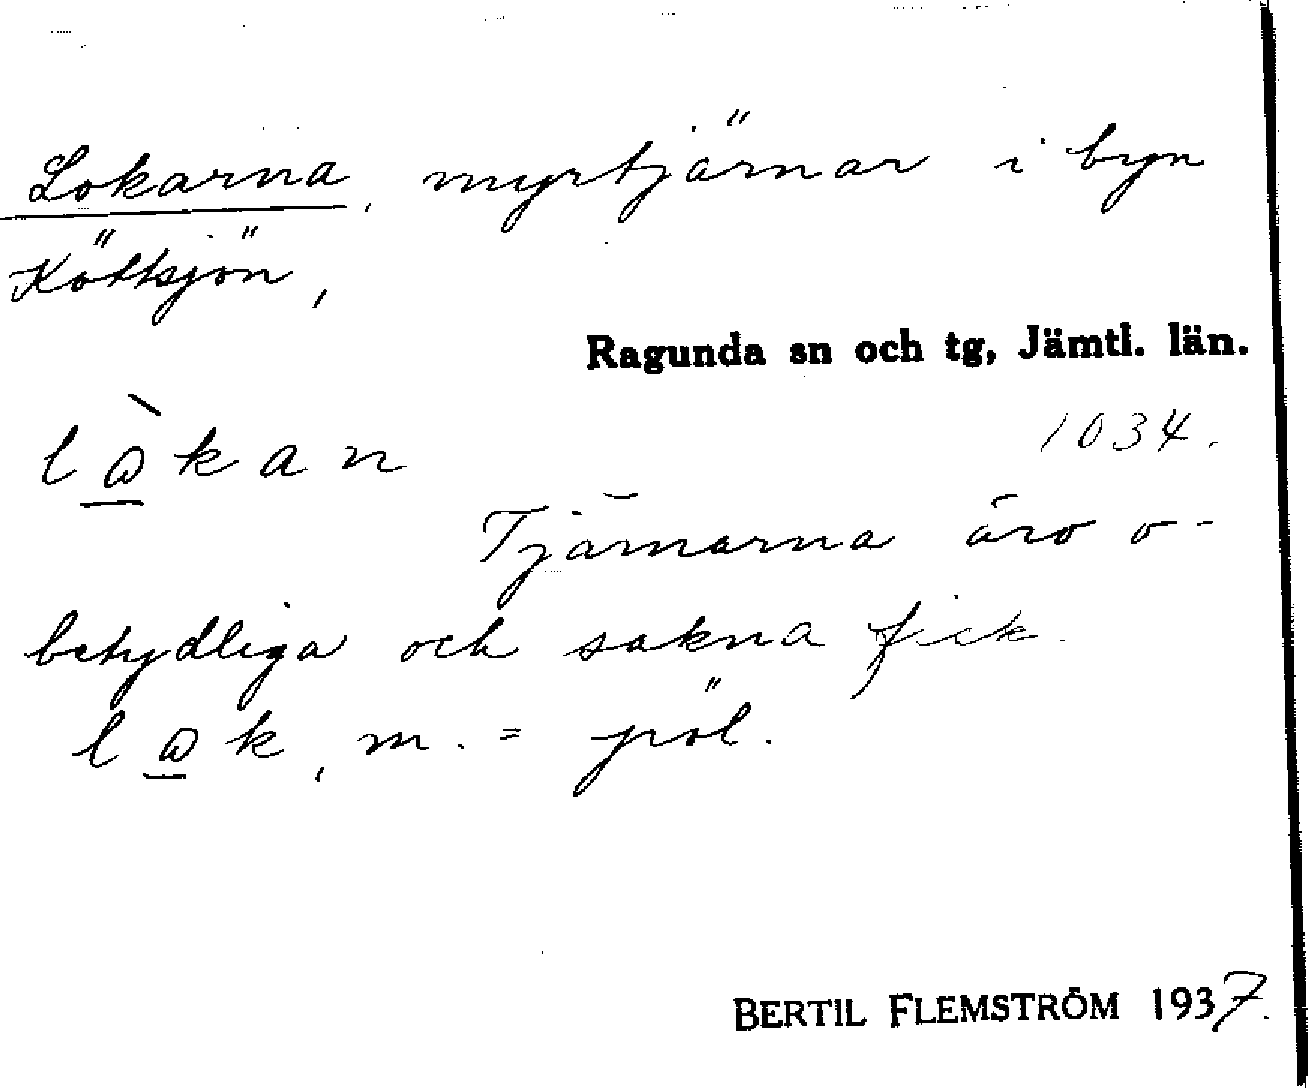 Lokarna, myrtjärnar i byn
Köttsjön,
Ragunda sn och tg, Jämtl. län.
lò̱kan
1034.
Tjärnarna äro o-
betydliga och sakna fisk.
lo̱k, m. = pöl.
BERTIL FLEMSTRÖM 1937.